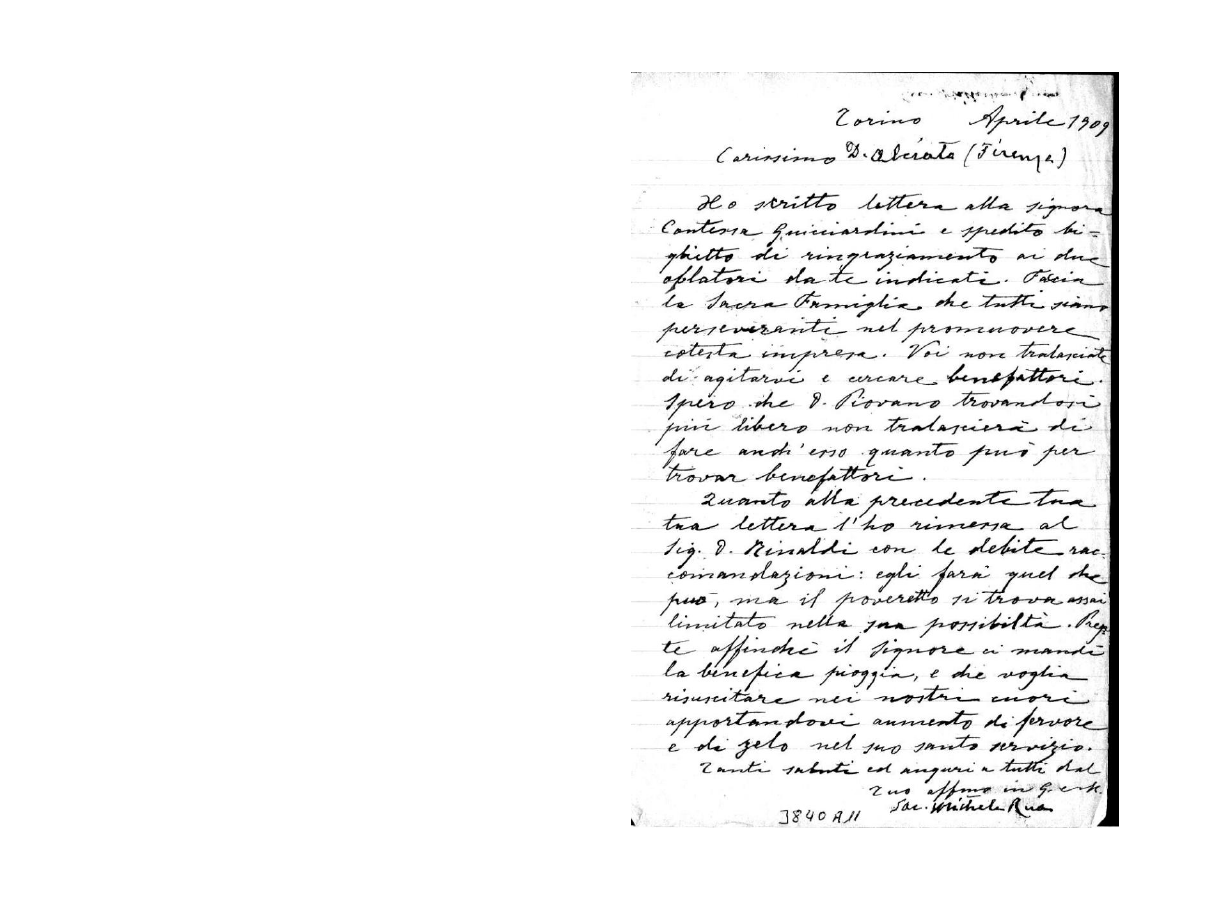 Torino Aprile 1909
Carissimo D. (Firenze)
Ho scritto lettera alla signora
Contessa Guicciardini e spedito bi=
ghetto di ringraziamento ai due
oblatori da te indicati. Faccia
la Sacra Famiglia che tutti siano
perseveranti nel promuovere
cotesta impresa. Voi non tralasciate
di agitarvi e cercare benefattori.
Spero che D. Piovano trovandosi
più libero non tralascierà di
fare anch'esso quanto può per
trovar benefattori.
Quanto alla precedente tua
tua lettera l'ho rimessa al
Sig. D. Rinaldi con le debite rac-
comandazioni: egli farà quel che
può, ma il poveretto si trova assai
limitato nella sua possibiltà. Prega
te affinchè il Signore ci mandi
la benefica pioggia, e che voglia
risuscitare nei nostri cuori
apportandovi aumento di fervore
e di zelo nel suo santo servizio.
Tanti saluti ed auguri a tutti dal
Tuo affmo in G. e M.
Sac. Michele Rua
3840 A 11